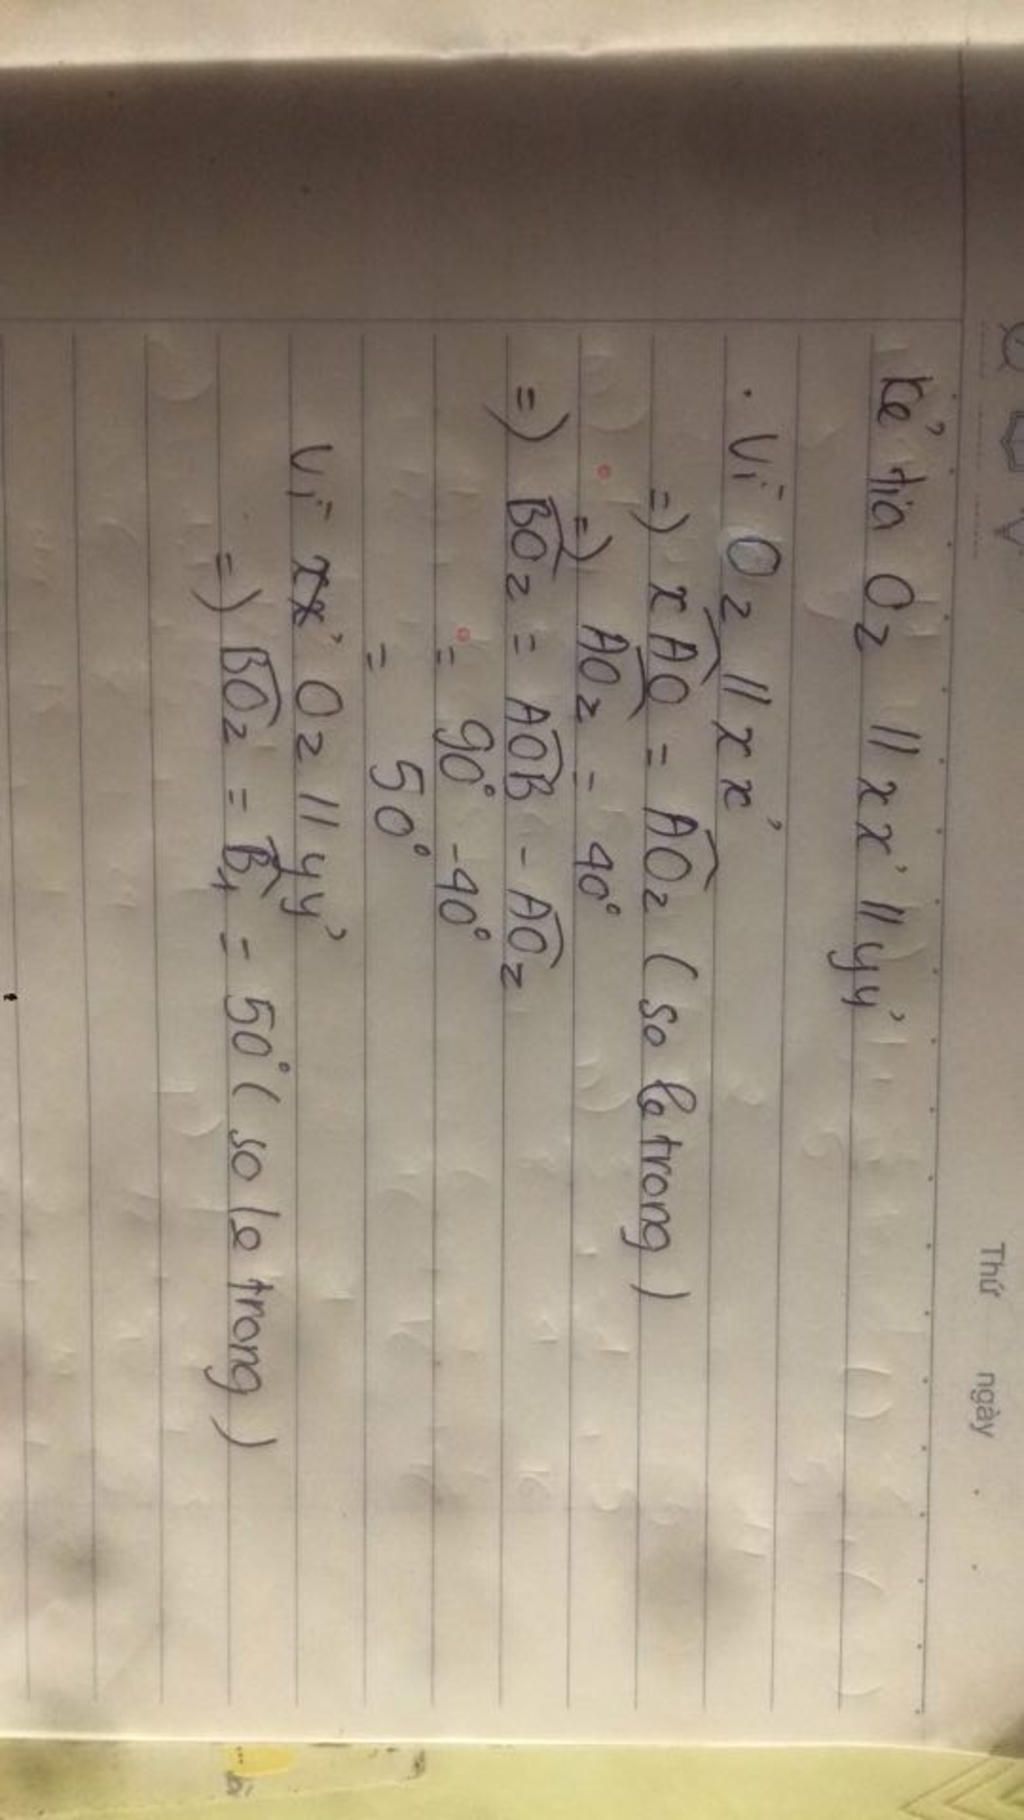 Thứ ngày
Kẻ tia Oz // xx' // yy'
. Vì Oz // xx'
=) xAO = AOz ( so le trong )
=) AOz = 40°
=) BOz = AOB - AOz
= 90° - 40°
= 50°
Vì Oz // yy'
=) BOz = B1 = 50° ( so le trong )